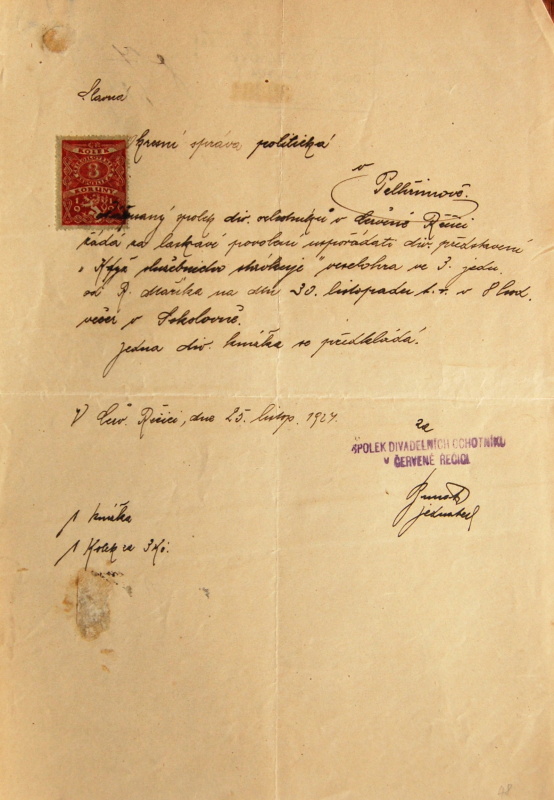 Slavná
ČR
KOLEK
3
KORUNY
1919
Okresní správa politická
v
Pelhřimově.
spolek div. ochotníků v Červené Řečici
žádá za laskavé povolení uspořádati div. představení
„Když služebnictvo stávkuje" veselohra ve 3. jedn.
od R. Maříka na den 30. listopadu t. r. v 8 hod.
večer v Sokolovně.
Jedna div. knížka se předkládá.
V Červ. Řečici, dne 25. listop. 1924.
za
SPOLEK DIVADELNÍCH OCHOTNÍKŮ
V ČERVENÉ ŘEČICI
jednatel
1 knížka
1 Kolek za 3 Kč.